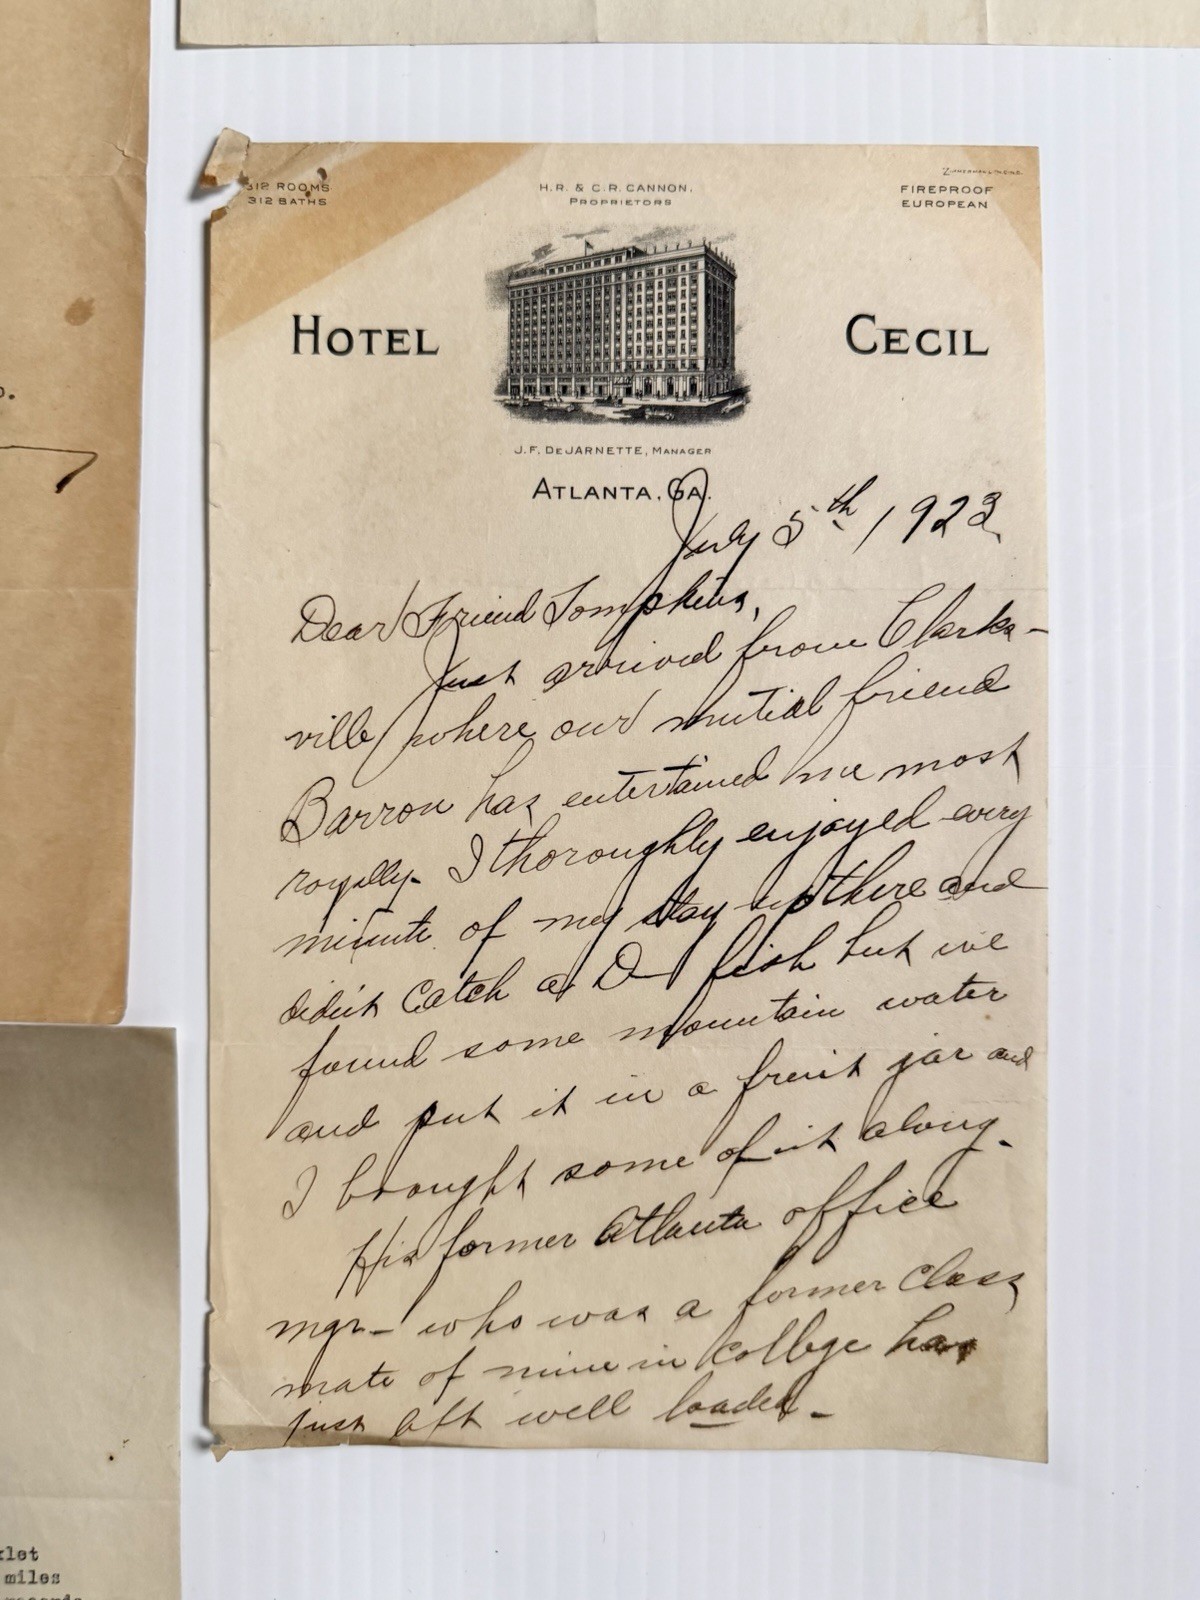 312 ROOMS
312 BATHS
H.R. & C.R. CANNON.
PROPRIETORS
FIREPROOF
EUROPEAN
HOTEL CECIL
J.F. DEJARNETTE, MANAGER
ATLANTA, GA.
July 5th 1923
Dear Friend Tompkins,
Just arrived from Clarks-
ville where our mutial friend
Barron has entertained me most
royally. I thoroughly enjoyed every
minute of my stay up there and
didn't catch a D— fish but we
found some mountain water
and put it in a fruit jar and
I brought some of it along.
His former Atlanta office
mgr- who was a former class
mate of mine in college has
just left well loaded.-
o.
klet
miles
records